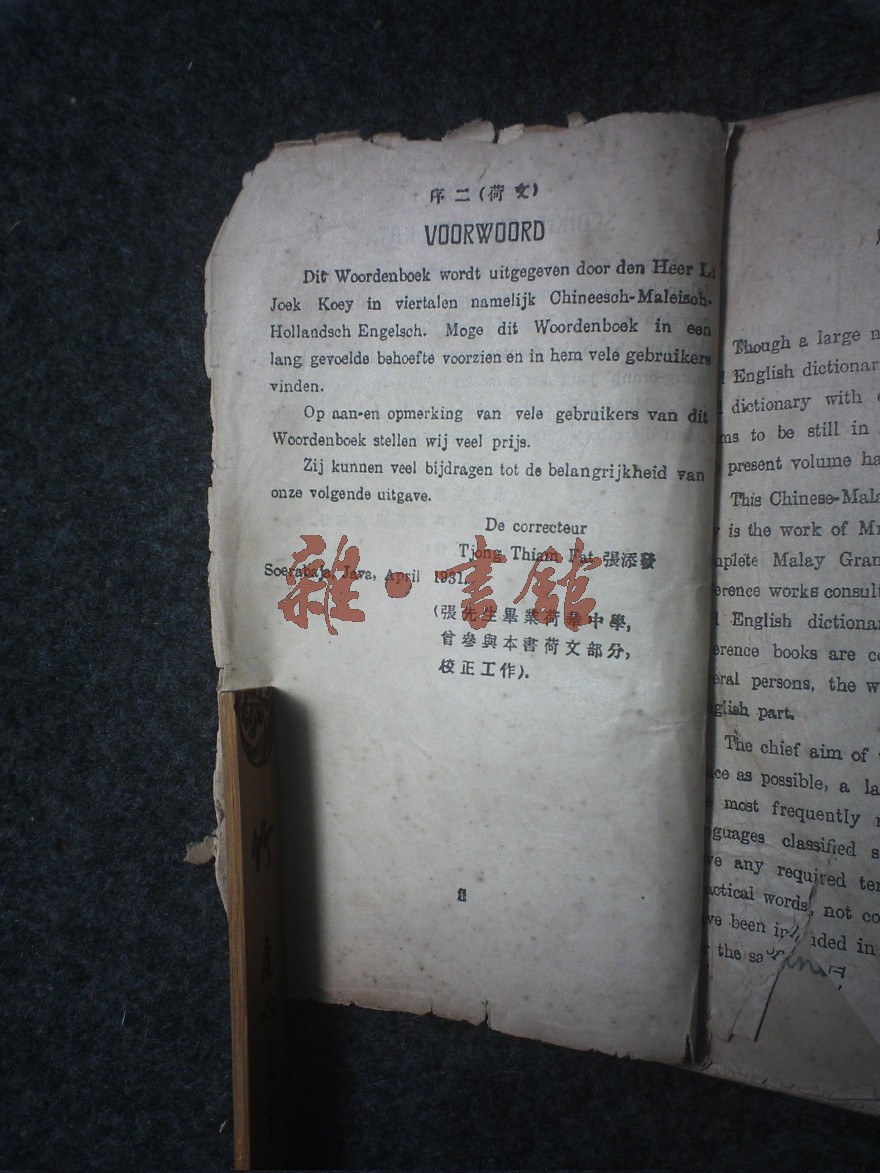 序二(荷文)
VOORWOORD
Dit Woordenboek wordt uitgegeven door den Heer
Joek Koey in viertalen namelijk Chineesch-Maleisch-
Hollandsch Engelsch. Moge dit Woordenboek in een
lang gevoelde behoefte voorzien en in hem vele gebruikers
vinden.
Op aan-en opmerking van vele gebruikers van dit
Woordenboek stellen wij veel prijs.
Zij kunnen veel bijdragen tot de belangrijkheid van
onze volgende uitgave.
De correcteur
Tjong Thiam Fat 張添發
Soerabaja, Java, April 1931.
(張先生畢業荷華中學,
曾參與本書荷文部分,
校正工作).
雜·書館
Though a large
English dictionar
dictionary with
to be still in
present volume ha
This Chinese-Mala
is the work of Mr
Malay Gran
works consult
English dictionar
books are
persons, the
part.
The chief aim of
as possible, a
most frequently
classified
any required
words, not
been in uded in
the